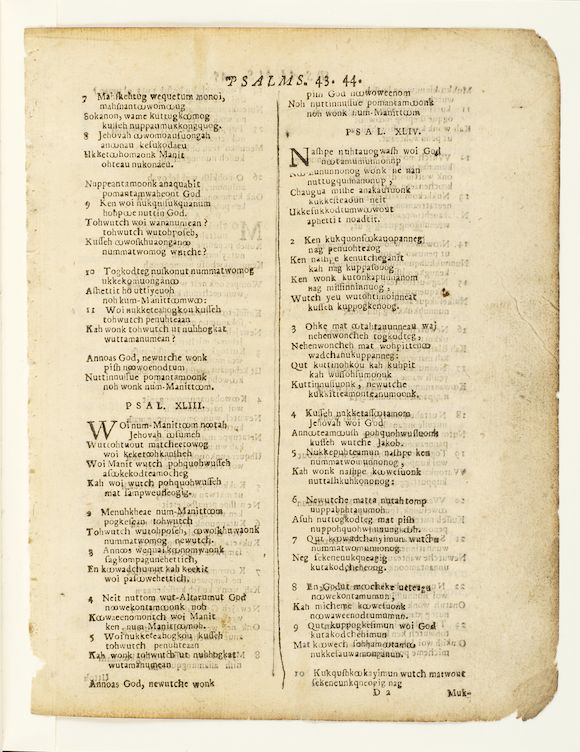 PSALMS. 43. 44.
7 Mat ſkehtug wequetum monoi,
mahſhantꝏwomꝏ​ug
Sokanon, wame kuttugkꝏmog
kuſſeh nuppaumukkongquog.
8 Jehovah ꝏwomonauſuongah
anꝏnau keſukodaeu
Ukketꝏhomaonk Manit
ohteau nukonaeu.
Nuppeantamoonk anaquabit
pomantamwaheont God
9 Ken woi nukquſukquanum
hohpꝏe nuttin God.
Tohwutch woi wananumean?
tohwutch wutohpoſeh,
Kuſſeh ꝏwoſkhuaonganꝏ
nummatwomog wutche?
10 Togkodteg nuſkonut nummatwomog
ukkekꝏmuonganꝏ
Aſhettit ho uttiyeuoh
noh kum-Manittꝏmwꝏ:
11 Woi nukketeahogkou kuſſeh
tohwutch penuhteaan
Kah wonk tohwutch ut nuhhogkat
wuttamanumean?
Annoas God, newutche wonk
piſh nꝏwoenodtum
Nuttinnuſſue pomantamoonk
noh wonk num-Manittꝏm.
PSAL. XLIII.
WOi num-Manittꝏm nꝏtah
Jehovah ꝏſumeh
Wuttohtuout matcheetowog
woi keketꝏhkauſheh
Woi Manit wutch pohquohwuſſeh
aſꝏkekodteamocheg
Kah woi wutch pohquohwuſſeh
mat ſampweuſſeogig.
2 Menuhkheae num-Manittꝏm
pogkeſean tohwutch
Tohwutch wutohpoſeh, ꝏwoſkhuwaonk
nummatwomog newutch.
3 Annoos wequai kꝏnomwaonk
ſagkompagunehettich,
En kꝏwadchunut kah keekit
woi paſꝏwehettich.
4 Neit nuttom wut-Altarumut God
nꝏwekontamꝏonk noh
Kꝏweenomontch woi Manit
ken num-Manittꝏmoh.
5 Woi nukketeahogkou kuſſeh
tohwutch penuhteaan
Kah wonk tohwutch ut nuhhogkat
wutamanumean
Annoas God, newutche wonk
piſh God nꝏwoweenom
Noh nuttinnuſſue pomantamꝏonk
noh wonk num-Manittꝏm
PSAL. XLIV.
Naſhpe nuhtauogwaſh woi God
nꝏtanumunnonnp
wonk ne nan
nuttuguinanonup,
Chaugua miſhe anakauſuonk
kukkeiteaoun neit
Ukkeſukkodtumwꝏwout
aphettit noadtit.
2 Ken kukquonſꝏkauopanneg
nag penuohteaog
Ken naſhpe kenutcheganit
kah nag kuppaſoog
Ken wonk kutonkapunanom
nag miſſinninnuog,
Wutch yeu wutohtinoinneat
kuſſeh kuppogkenoog.
3 Ohke mat ꝏtahtaunneau waj
nehenwoncheh togkodteg,
Nehenwoncheh mat wohpittenꝏ
wadchanukuppanneg:
Qut kuttinohkou kah kuhpit
kah wuſſohſumoonk
Kuttinnuſſuonk, newutche
kukkitteamonteanumoonk.
4 Kuſſeh nukketaſſꝏtamom
Jehovah woi God
Annꝏteamouſh pohquohwuſſuonk
kuſſeh wutche Jakob.
5 Nukkepuhteamun naſhpe ken
nummatwomunnonog,
Kah wonk naſhpe kꝏweſuonk
nuttaſhkuhkononog:
6. Newutche matta nutahtomp
nuppabuhtanumoh
Aſuh nuttogkodteg mat piſh
nuppohquohwunnungkoh.
7 Qut kꝏwadchanyimun wutche
nummatwomunonog
Neg ſekenenukqueagig
kutakodchehcong.
8 En Godut mꝏcheke ueteagu
nꝏwekontamumun,
Kah micheme kꝏweſuonk
nꝏwaweenodtumumun.
9 Qut kuppogkeſimun woi God
kutakodchehimun
Mat kꝏwech ſohhamꝏtamꝏ
nukkeſauwamonganun.
10 Kukquſhkꝏkayimun wutch matwout
ſekeneunkqneogig nag
D 2
Muk-